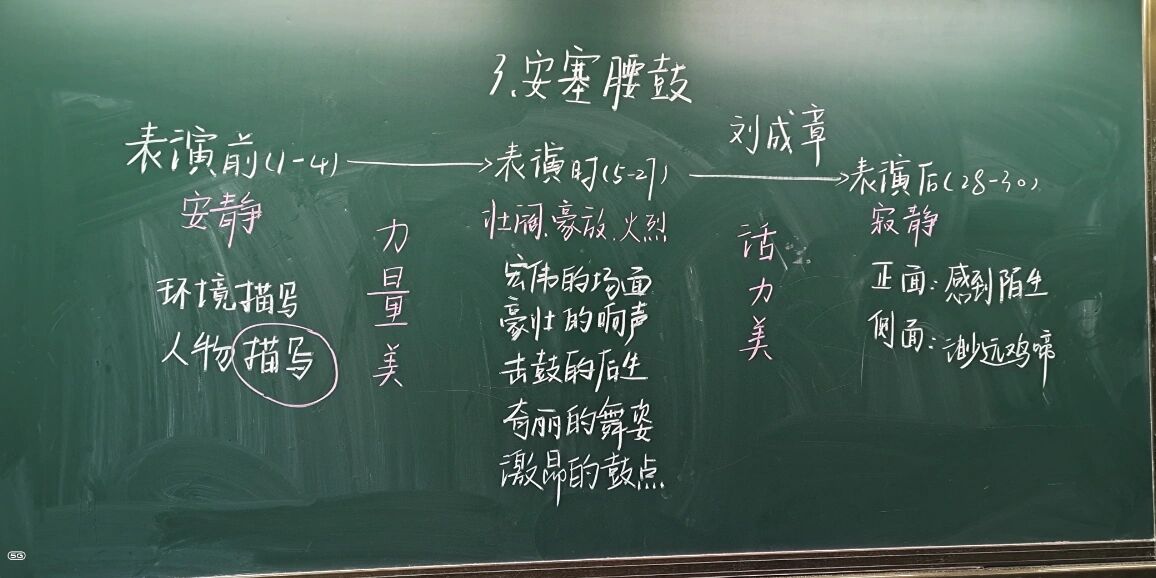 3、安塞腰鼓
刘成章
表演前(1-4)
安静
环境描写
人物描写
力量美
表演时(5-27)
壮阔、豪放、火烈
宏伟的场面
豪壮的响声
击鼓的后生
奇丽的舞姿
激昂的鼓点
活力美
表演后(28-30)
寂静
正面:感到陌生
侧面:渺远鸡啼
5G